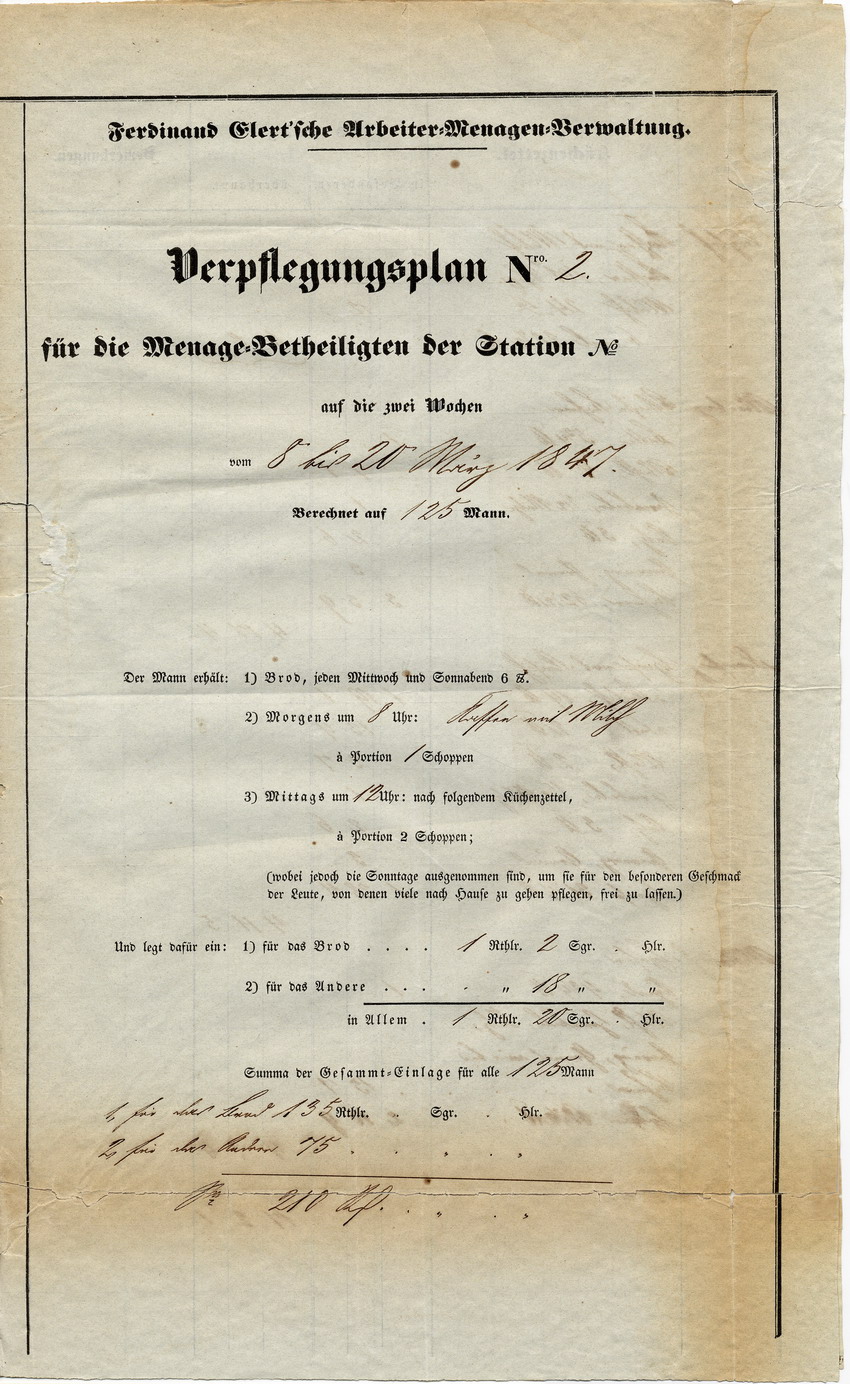 Ferdinand Elert'sche Arbeiter-Menagen-Verwaltung.
Verpflegungsplan Nro. 2.
für die Menage-Betheiligten der Station №
auf die zwei Wochen
vom 8 bis 20 März 1847.
Berechnet auf 125 Mann.
Der Mann erhält: 1) Brod, jeden Mittwoch und Sonnabend 6 ℔.
2) Morgens um 8 Uhr: Kaffee mit Milch
à Portion 1 Schoppen
3) Mittags um 12 Uhr: nach folgendem Küchenzettel,
à Portion 2 Schoppen;
(wobei jedoch die Sonntage ausgenommen sind, um sie für den besonderen Geschmack
der Leute, von denen viele nach Hause zu gehen pflegen, frei zu lassen.)
Und legt dafür ein: 1) für das Brod . . . . 1 Rthlr. 2 Sgr. . Hlr.
2) für das Andere . . . . " 18 " "
in Allem . 1 Rthlr. 20 Sgr. . Hlr.
Summa der Gesammt-Einlage für alle 125 Mann
1, für das Brod 135 Rthlr. . Sgr. . Hlr.
2, für das Andere 75 . " . "
210 . " . "